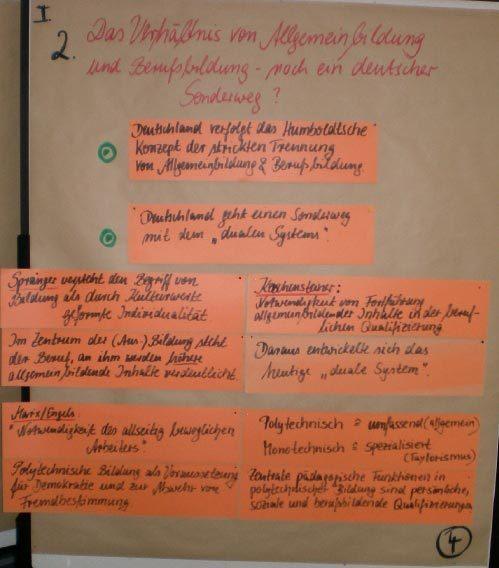 I
2. Das Verhältnis von Allgemeinbildung
und Berufsbildung - noch ein deutscher
Sonderweg?
Deutschland verfolgt das Humboldtsche
Konzept der strikten Trennung
von Allgemeinbildung & Berufsbildung.
Deutschland geht einen Sonderweg
mit dem „dualen Systems".
Spranger versteht den Begriff von
Bildung als durch Kulturwerte
geformte Individualität
Im Zentrum der (Aus-)Bildung steht
der Beruf, an ihm werden höhere
allgemeinbildende Inhalte verdeutlicht.
Kerschensteiner:
Notwendigkeit von Fortführung
allgemeinbildender Inhalte in der beruf-
lichen Qualifizierung
Daraus entwickelte sich das
heutige „duale System".
Marx/Engels:
"Notwendigkeit des allseitig beweglichen
Arbeiters".
Polytechnische Bildung als Voraussetzung
für Demokratie und zur Abwehr von
Fremdbestimmung
Polytechnisch ≙ umfassend (allgemein)
Monotechnisch ≙ spezialisiert
(Taylorismus)
Zentrale pädagogische Funktionen in
polytechnischer Bildung sind persönliche,
soziale und berufsbildende Qualifizierungen
4